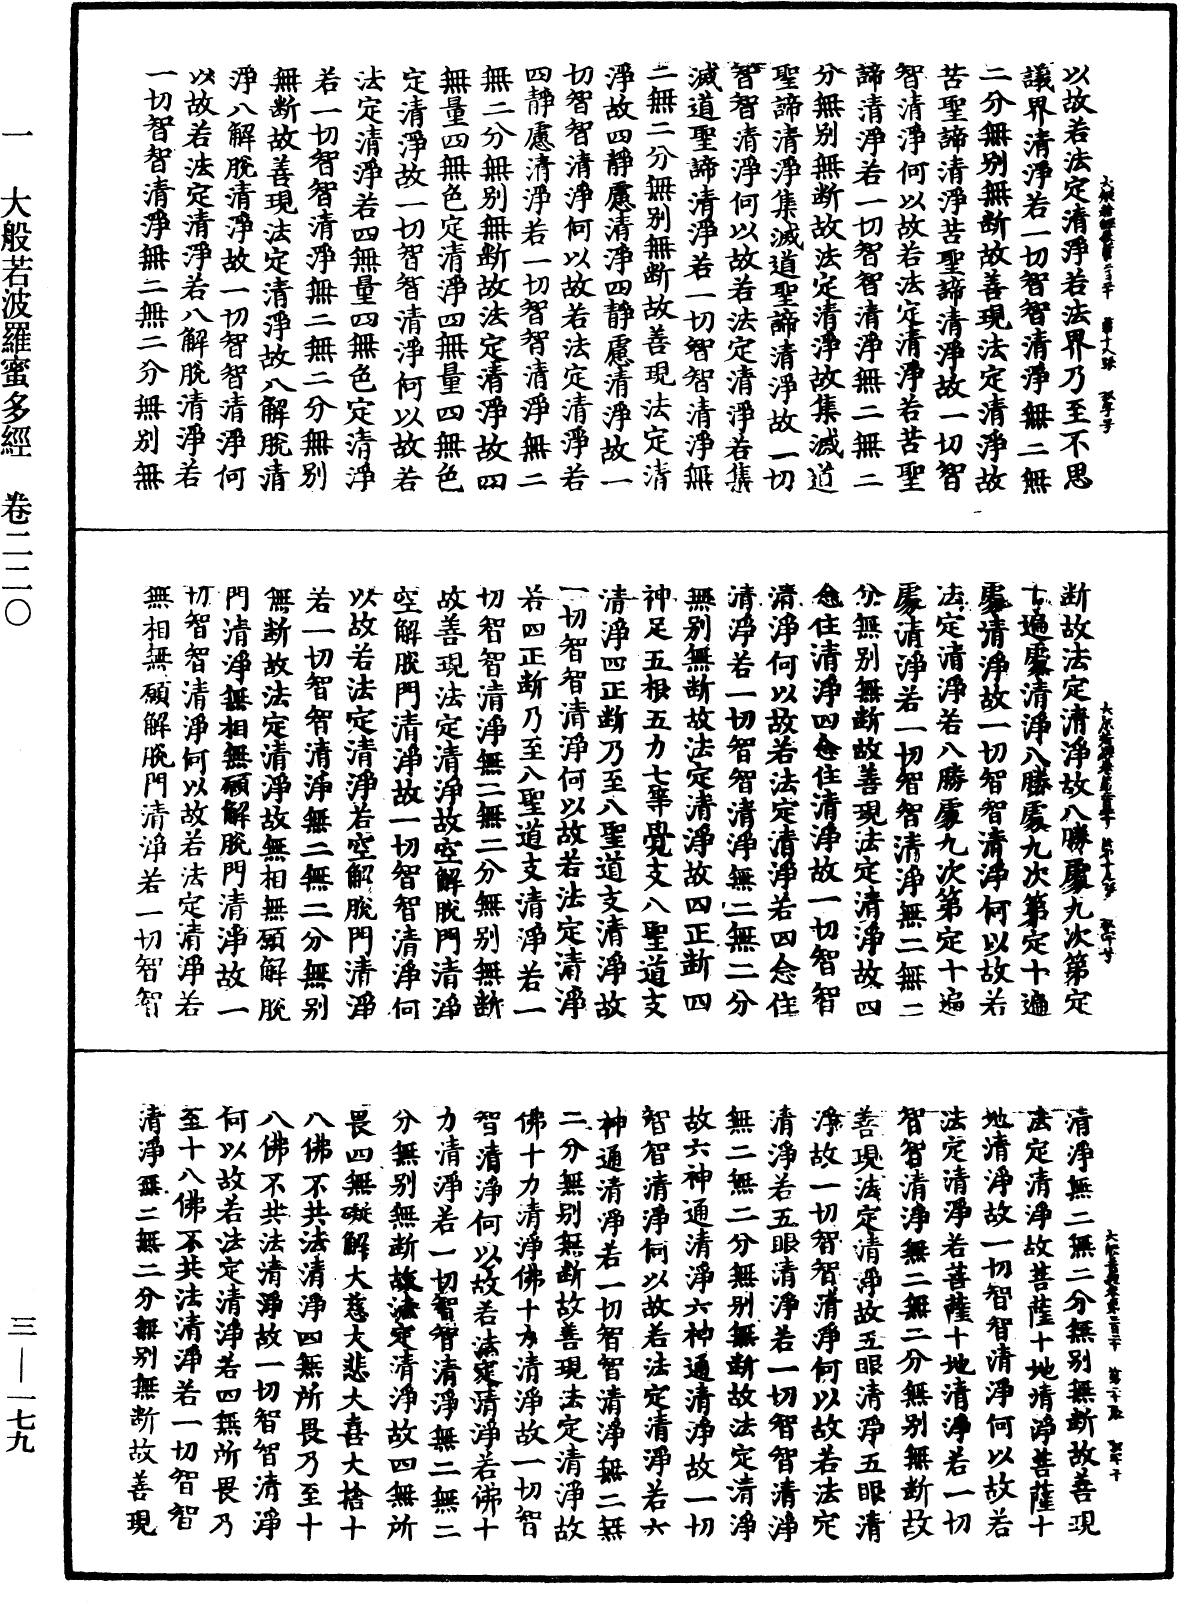 以故若法定清淨若法界乃至不思
議界清淨若一切智智清淨無二無
二分無別無斷故善現法定清淨故
苦聖諦清淨苦聖諦清淨故一切智
智清淨何以故若法定清淨若苦聖
諦清淨若一切智智清淨無二無二
分無別無斷故法定清淨故集滅道
聖諦清淨集滅道聖諦清淨故一切
智智清淨何以故若法定清淨若集
滅道聖諦清淨若一切智智清淨無
二無二分無別無斷故善現法定清
淨故四靜慮清淨四靜慮清淨故一
切智智清淨何以故若法定清淨若
四靜慮清淨若一切智智清淨無二
無二分無別無斷故法定清淨故四
無量四無色定清淨四無量四無色
定清淨故一切智智清淨何以故若
法定清淨若四無量四無色定清淨
若一切智智清淨無二無二分無別
無斷故善現法定清淨故八解脫清
淨八解脫清淨故一切智智清淨何
以故若法定清淨若八解脫清淨若
一切智智清淨無二無二分無別無
斷故法定清淨故八勝處九次第定
十遍處清淨八勝處九次第定十遍
處清淨故一切智智清淨何以故若
法定清淨若八勝處九次第定十遍
處清淨若一切智智清淨無二無二
分無別無斷故善現法定清淨故四
念住清淨四念住清淨故一切智智
清淨何以故若法定清淨若四念住
清淨若一切智智清淨無二無二分
無別無斷故法定清淨故四正斷四
神足五根五力七等覺支八聖道支
清淨四正斷乃至八聖道支清淨故
一切智智清淨何以故若法定清淨
若四正斷乃至八聖道支清淨若一
切智智清淨無二無二分無別無斷
故善現法定清淨故空解脫門清淨
空解脫門清淨故一切智智清淨何
以故若法定清淨若空解脫門清淨
若一切智智清淨無二無二分無別
無斷故法定清淨故無相無願解脫
門清淨無相無願解脫門清淨故一
切智智清淨何以故若法定清淨若
無相無願解脫門清淨若一切智智
清淨無二無二分無別無斷故善現
法定清淨故菩薩十地清淨菩薩十
地清淨故一切智智清淨何以故若
法定清淨若菩薩十地清淨若一切
智智清淨無二無二分無別無斷故
善現法定清淨故五眼清淨五眼清
淨故一切智智清淨何以故若法定
清淨若五眼清淨若一切智智清淨
無二無二分無別無斷故法定清淨
故六神通清淨六神通清淨故一切
智智清淨何以故若法定清淨若六
神通清淨若一切智智清淨無二無
二分無別無斷故善現法定清淨故
佛十力清淨佛十力清淨故一切智
智清淨何以故若法定清淨若佛十
力清淨若一切智智清淨無二無二
分無別無斷故法定清淨故四無所
畏四無礙解大慈大悲大喜大捨十
八佛不共法清淨四無所畏乃至十
八佛不共法清淨故一切智智清淨
何以故若法定清淨若四無所畏乃
至十八佛不共法清淨若一切智智
清淨無二無二分無別無斷故善現
一 大般若波羅蜜多經 卷二二〇
三—一七九